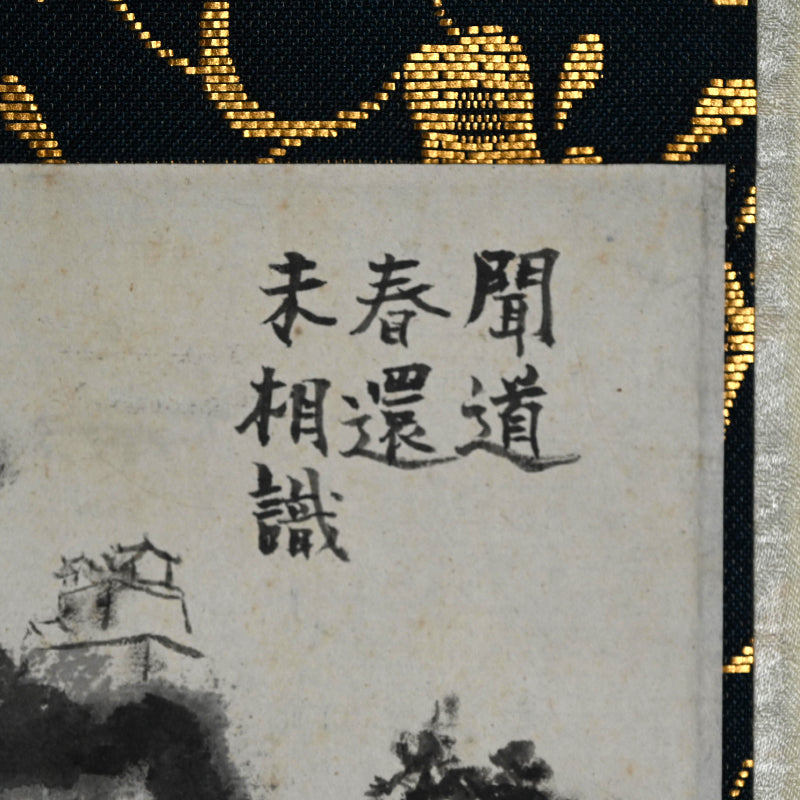 聞道
春還
未相識